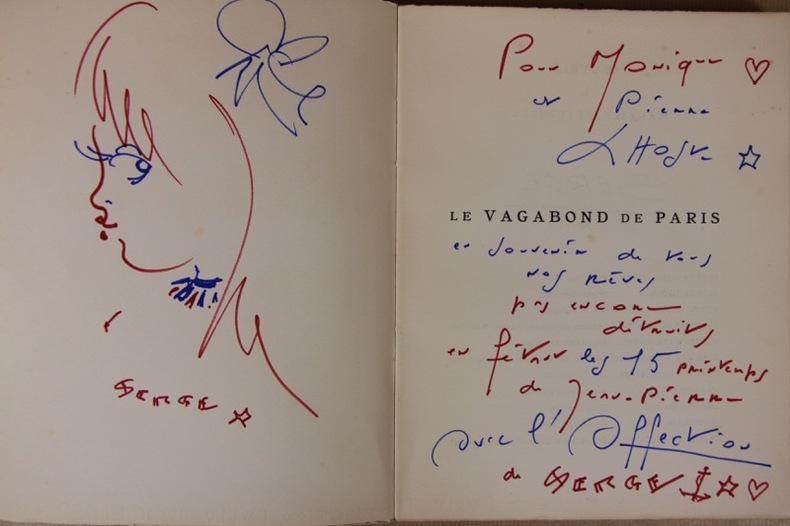 SERGE
Pour Monique
et Pierre
LHOSTE
LE VAGABOND DE PARIS
en souvenir de tous
nos rêves
pas encore
détruits
en fêtant les 15 printemps
de Jean-Pierre
avec l'Affection
de SERGE